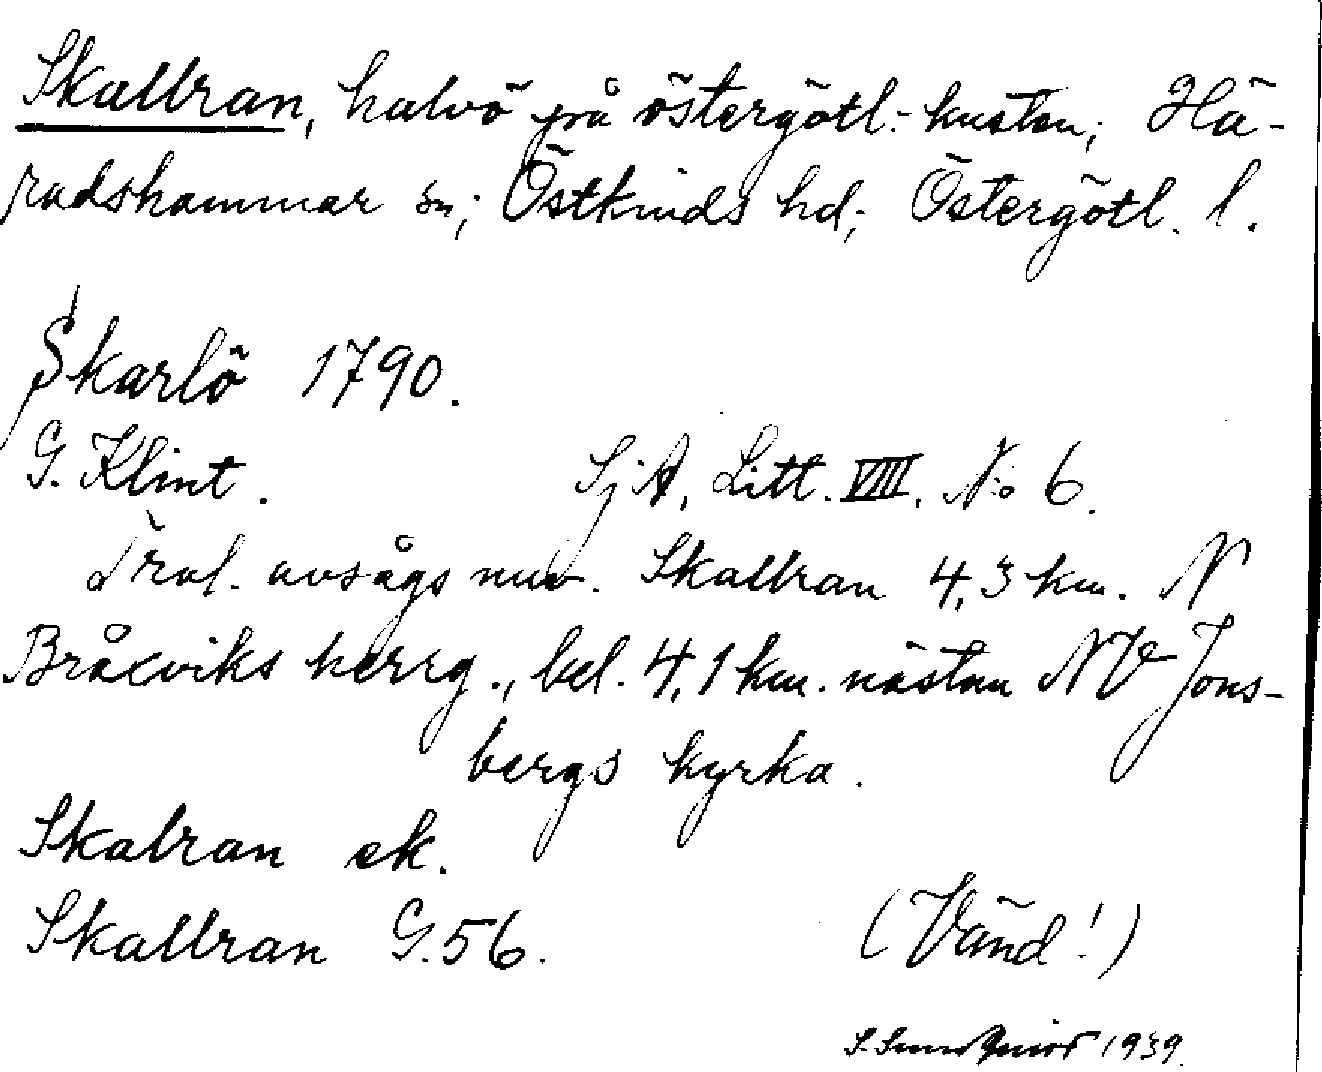 Skallran, halvö på östergötl.-kusten; Hä-
radshammar sn; Östkinds hd; Östergötl. l.
Skarlö 1790.
G. Klint. SjA, Litt. VIII, No 6.
Trol. avsågs nuv. Skallran 4,3 km. N
Bråxviks herrg., bel. 4,1 km. nästan NV Jons-
bergs kyrka.
Skalran ek.
Skallran G.56.
(Vänd!)
1939.